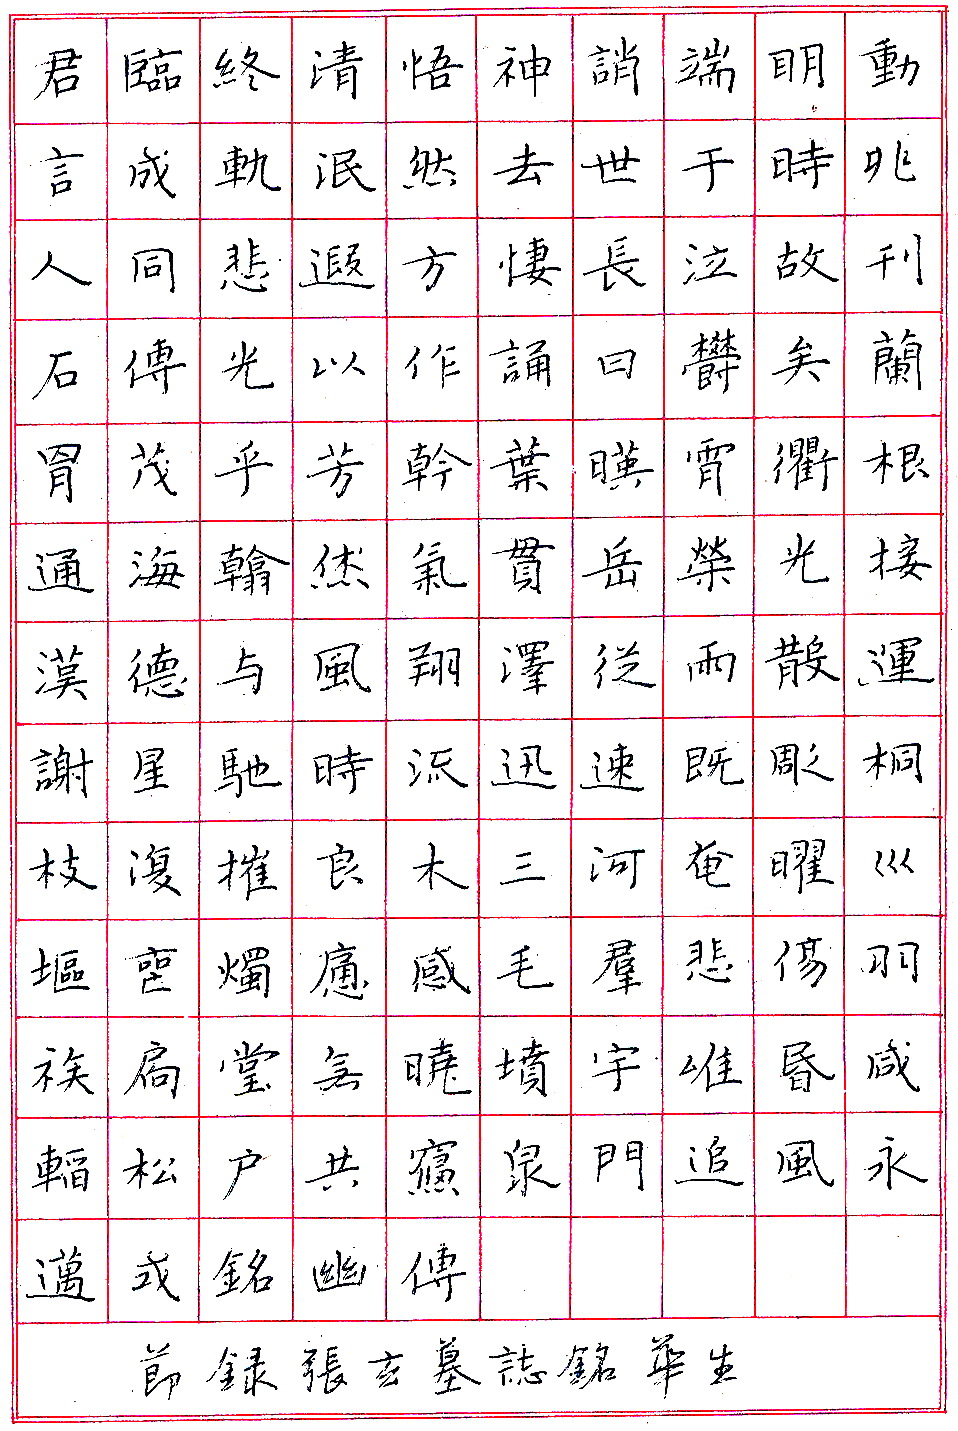 君臨終清悟神誚端明動
言成軌泯然去世于時兆
人同悲遐方悽長泣故刊
石傳光以作誦曰欝矣蘭
胃茂乎芳幹葉暎霄衢根
通海翰烋氣貫岳榮光接
漢德与風翔澤從雨散運
謝星馳時流迅速既彫桐
枝復摧良木三河奄曜巛
塸喪燭痛感毛羣悲傷羽
族扃堂無曉墳宇唯昏咸
轜松户共寢泉門追風永
邁式銘幽傳
節録張玄墓誌銘華生